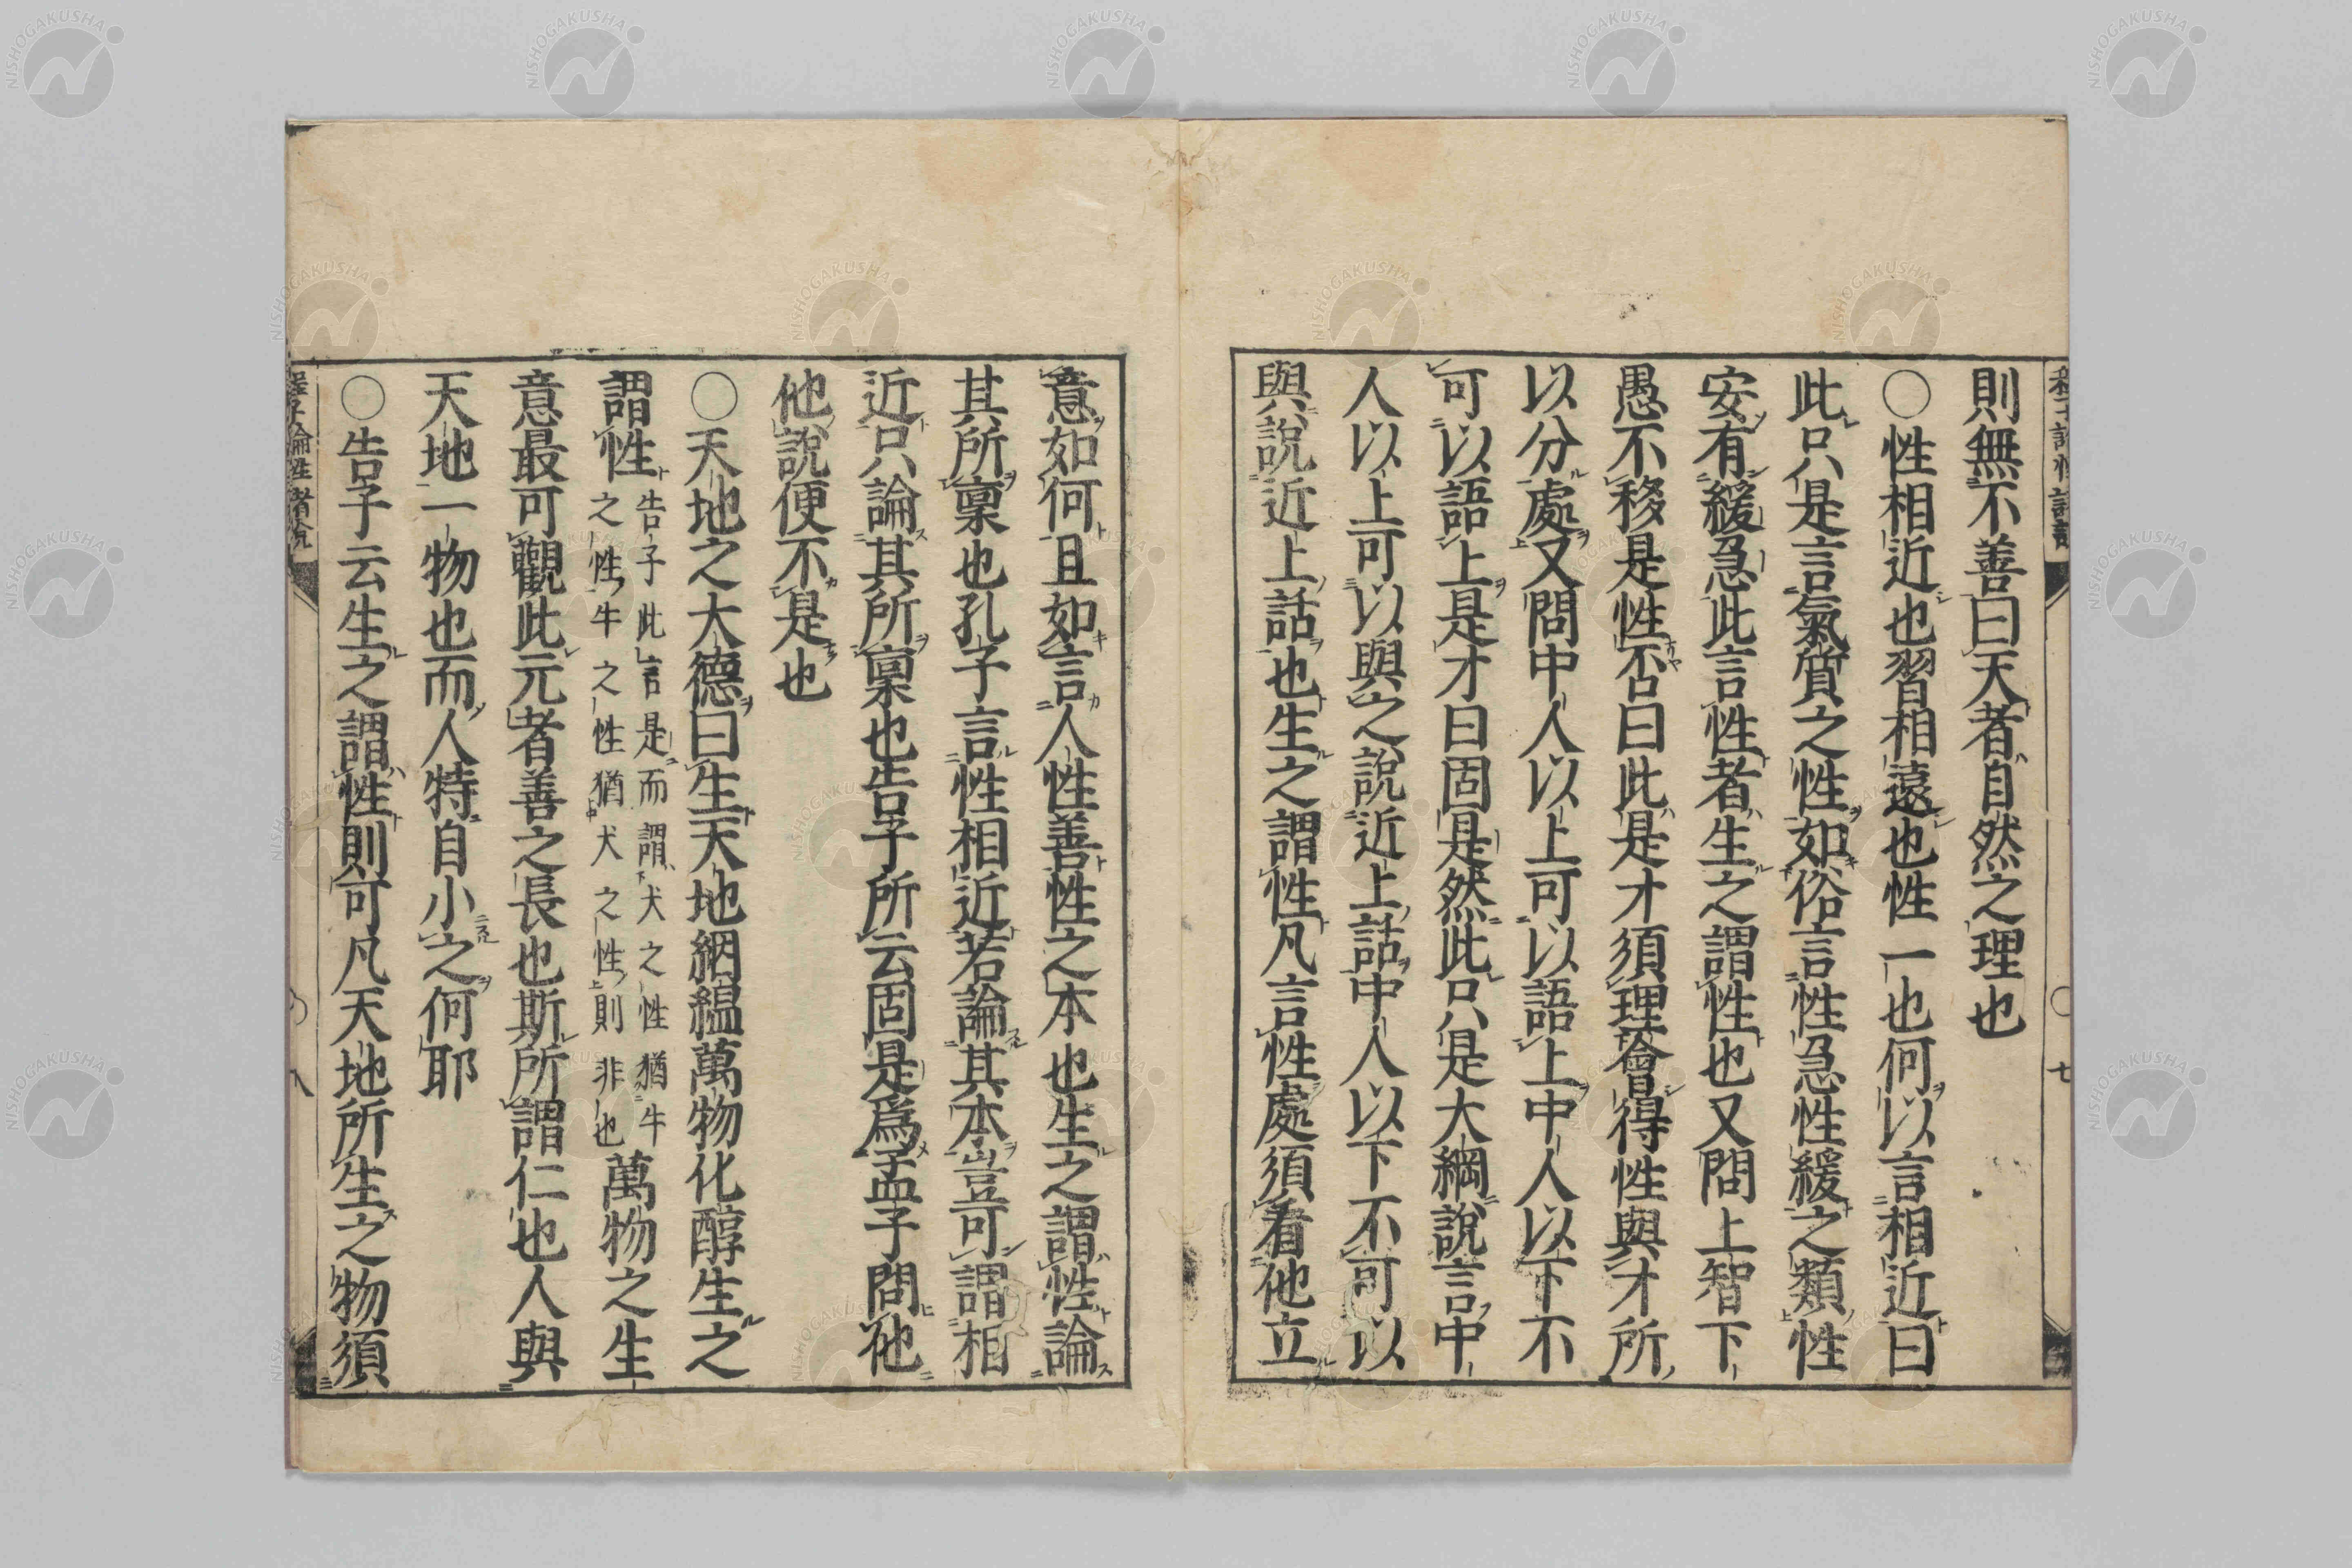 則無不善曰天者自然之理也
○性相近也習相遠也性一也何以言相近曰
此只是言氣質之性如俗言性急性緩之類性
安有緩急此言性者生之謂性也又問上智下
愚不移是性否曰此是才須理會得性與才所
以分處又問中人以上可以語上中人以下不
可以語上是才曰固是然此只是大綱說言中
人以上可以與之說近上話中人以下不可以
與說近上話也生之謂性凡言性處須看他立
七
意如何且如言人性善性之本也生之謂性論
其所稟也孔子言性相近若論其本豈可謂相
近只論其所稟也告子所云固是爲孟子問他
他說便不是也
○天地之大德曰生天地絪縕萬物化醇生之
謂性告子此言是而謂犬之性猶牛
之性牛之性猶犬之性則非也萬物之生
意最可觀此元者善之長也斯所謂仁也人與
天地一物也而人特自小之何耶
○告子云生之謂性則可凡天地所生之物須
八
NISHOGAKUSHA